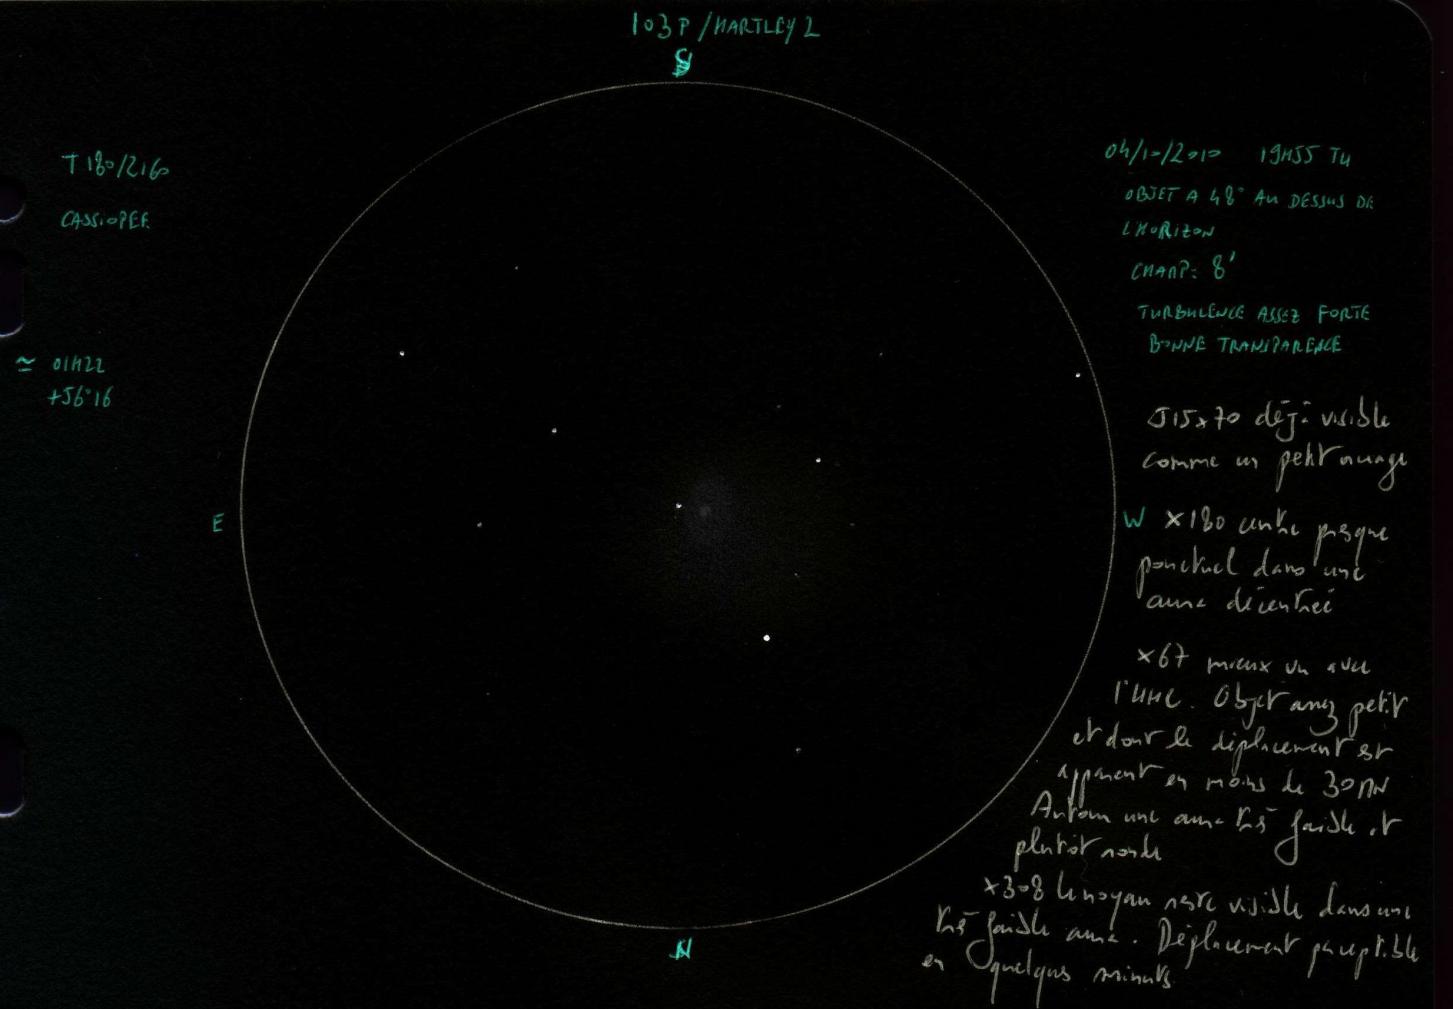 103P/HARTLEY 2
S
T 180/2160
CASSIOPEE
≃ 01H22
+56°16
04/10/2010 19H55 TU
OBJET A 48° AU DESSUS DE
L'HORIZON
CHAMP: 8'
TURBULENCE ASSEZ FORTE
BONNE TRANSPARENCE
J15x70 déjà visible
comme un petit nuage
E
W
x180 centre presque
ponctuel dans une
aura décentrée
x67 mieux vu avec
l'UHC. Objet assez petit
et dont le déplacement est
apparent en moins de 30MN
Autour une aura très faible et
plutôt ronde
x308 le noyau reste visible dans une
très faible aura. Déplacement perceptible
en quelques minutes
N